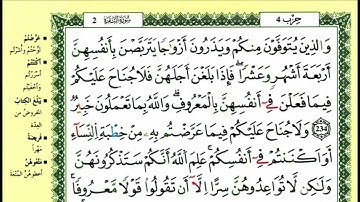 حِزْب 4
سُورَةُ البَقَرَة
2
وَالَّذِينَ يُتَوَفَّوْنَ مِنكُمْ وَيَذَرُونَ أَزْوَٰجًا يَتَرَبَّصْنَ بِأَنفُسِهِنَّ
أَرْبَعَةَ أَشْهُرٍ وَعَشْرًا فَإِذَا بَلَغْنَ أَجَلَهُنَّ فَلَا جُنَاحَ عَلَيْكُمْ
فِيمَا فَعَلْنَ فِي أَنفُسِهِنَّ بِالْمَعْرُوفِ وَاللَّهُ بِمَا تَعْمَلُونَ خَبِيرٌ
234 وَلَا جُنَاحَ عَلَيْكُمْ فِيمَا عَرَّضْتُم بِهِ مِنْ خِطْبَةِ النِّسَاءِ
أَوْ أَكْنَنتُمْ فِي أَنفُسِكُمْ عَلِمَ اللَّهُ أَنَّكُمْ سَتَذْكُرُونَهُنَّ
وَلَٰكِن لَّا تُوَاعِدُوهُنَّ سِرًّا إِلَّا أَن تَقُولُوا قَوْلًا مَّعْرُوفًا
عَرَّضْتُم
لَوَّحْتُم وَأَشَرْتُم
أَكْنَنتُمْ
أَسْرَرْتُم
وَأَخْفَيْتُم
يَبْلُغَ الكِتَابُ
المَفْرُوضُ مِنَ
العِدَّة
فَرِيضَةً
مَهْرًا